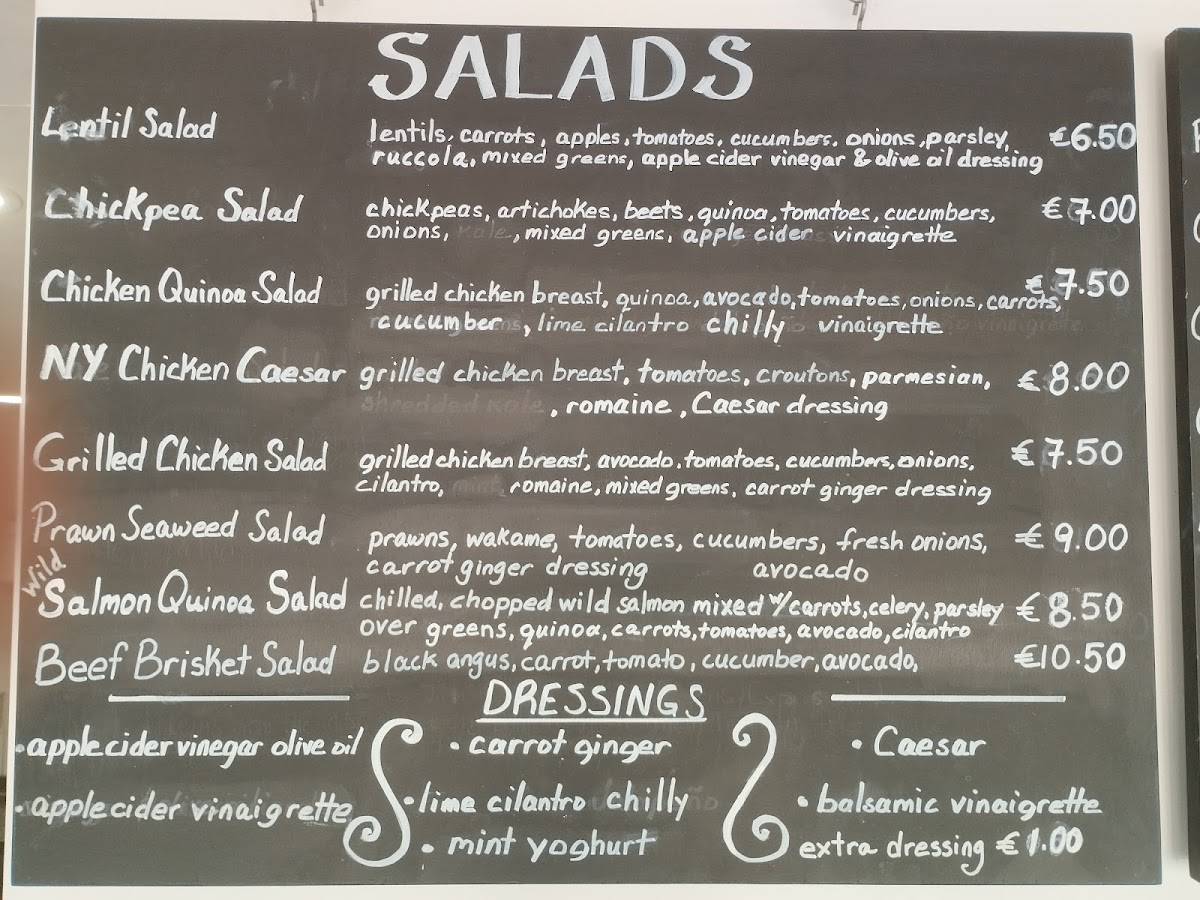 SALADS
Lentil Salad lentils, carrots, apples, tomatoes, cucumbers, onions, parsley, €6.50
ruccola, mixed greens, apple cider vinegar & olive oil dressing
Chickpea Salad chickpeas, artichokes, beets, quinoa, tomatoes, cucumbers, €7.00
onions, kale, mixed greens, apple cider vinaigrette
Chicken Quinoa Salad grilled chicken breast, quinoa, avocado, tomatoes, onions, carrots, €7.50
cucumber, lime cilantro chilly vinaigrette
NY Chicken Caesar grilled chicken breast, tomatoes, croutons, parmesian, €8.00
shredded kale, romaine, Caesar dressing
Grilled Chicken Salad grilled chicken breast, avocado, tomatoes, cucumbers, onions, €7.50
cilantro, mint, romaine, mixed greens, carrot ginger dressing
Prawn Seaweed Salad prawns, wakame, tomatoes, cucumbers, fresh onions, €9.00
carrot ginger dressing avocado
Wild
Salmon Quinoa Salad chilled, chopped wild salmon mixed w/carrots, celery, parsley €8.50
over greens, quinoa, carrots, tomatoes, avocado, cilantro
Beef Brisket Salad black angus, carrot, tomato, cucumber, avocado, €10.50
DRESSINGS
• apple cider vinegar olive oil
• apple cider vinaigrette
• carrot ginger
• lime cilantro chilly
• mint yoghurt
• Caesar
• balsamic vinaigrette
extra dressing €1.00